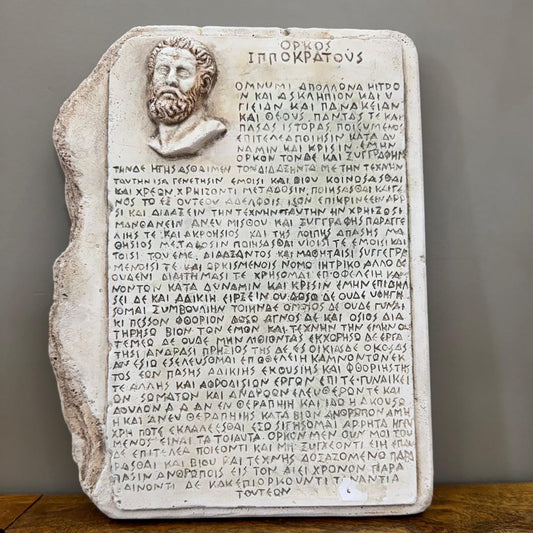 ΟΡΚΟΣ
ΙΠΠΟΚΡΑΤΟΥΣ
ΟΜΝΥΜΙ ΑΠΟΛΛΟΝΑ ΙΗΤΡΟ
Ν ΚΑΙ ΑΣΚΛΗΠΙΟΝ ΚΑΙ Υ
ΓΙΕΙΑΝ ΚΑΙ ΠΑΝΑΚΕΙΑΝ
ΚΑΙ ΘΕΟΥΣ ΠΑΝΤΑΣ ΤΕ ΚΑΙ
ΠΑΣΑΣ ΙΣΤΟΡΑΣ ΠΟΙΕΥΜΕΝΟΣ
ΕΠΙΤΕΛΕΑ ΠΟΙΗΣΙΝ ΚΑΤΑ ΔΥ
ΝΑΜΙΝ ΚΑΙ ΚΡΙΣΙΝ ΕΜΗΝ
ΟΡΚΟΝ ΤΟΝΔΕ ΚΑΙ ΞΥΓΓΡΑΦΗΝ
ΤΗΝΔΕ ΗΓΗΣΑΣΘΑΙ ΜΕΝ ΤΟΝ ΔΙΔΑΞΑΝΤΑ ΜΕ ΤΗΝ ΤΕΧΝΗΝ
ΤΑΥΤΗΝ ΙΣΑ ΓΕΝΕΤΗΣΙΝ ΕΜΟΙΣΙ ΚΑΙ ΒΙΟΥ ΚΟΙΝΟΣΑΣΘΑΙ
ΚΑΙ ΧΡΕΩΝ ΧΡΗΙΖΟΝΤΙ ΜΕΤΑΔΟΣΙΝ ΠΟΙΗΣΑΣΘΑΙ ΚΑΙ ΓΕ
ΝΟΣ ΤΟ ΕΞ ΟΥΤΕΟΥ ΑΔΕΛΦΟΙΣ ΙΣΟΝ ΕΠΙΚΡΙΝΕΕΙΝ ΑΡΡ
ΕΣΙ ΚΑΙ ΔΙΔΑΞΕΙΝ ΤΗΝ ΤΕΧΝΗΝ ΤΑΥΤΗΝ ΗΝ ΧΡΗΙΖΩΣΙ
ΜΑΝΘΑΝΕΙΝ ΑΝΕΥ ΜΙΣΘΟΥ ΚΑΙ ΞΥΓΓΡΑΦΗΣ ΠΑΡΑΓΓΕ
ΛΙΗΣ ΤΕ ΚΑΙ ΑΚΡΟΗΣΙΟΣ ΚΑΙ ΤΗΣ ΛΟΙΠΗΣ ΑΠΑΣΗΣ ΜΑ
ΘΗΣΙΟΣ ΜΕΤΑΔΟΣΙΝ ΠΟΙΗΣΑΣΘΑΙ ΥΙΟΙΣΙ ΤΕ ΕΜΟΙΣΙ ΚΑΙ
ΤΟΙΣΙ ΤΟΥ ΕΜΕ ΔΙΔΑΞΑΝΤΟΣ ΚΑΙ ΜΑΘΗΤΑΙΣΙ ΣΥΓΓΕΓΡΑ
ΜΕΝΟΙΣΙ ΤΕ ΚΑΙ ΟΡΚΙΣΜΕΝΟΙΣ ΝΟΜΩ ΙΗΤΡΙΚΩ ΑΛΛΩ ΔΕ
ΟΥΔΕΝΙ ΔΙΑΙΤΗΜΑΣΙ ΤΕ ΧΡΗΣΟΜΑΙ ΕΠ ΟΦΕΛΕΙΗ ΚΑΜ
ΝΟΝΤΩΝ ΚΑΤΑ ΔΥΝΑΜΙΝ ΚΑΙ ΚΡΙΣΙΝ ΕΜΗΝ ΕΠΙ ΔΗΛΗ
ΣΕΙ ΔΕ ΚΑΙ ΑΔΙΚΙΗ ΕΙΡΞΕΙΝ ΟΥ ΔΩΣΩ ΔΕ ΟΥΔΕ ΥΦΗΓΗ
ΣΟΜΑΙ ΞΥΜΒΟΥΛΙΗΝ ΤΟΙΗΝΔΕ ΟΜΟΙΩΣ ΔΕ ΟΥΔΕ ΓΥΝΑΙ
ΚΙ ΠΕΣΣΟΝ ΦΘΟΡΙΟΝ ΔΩΣΩ ΑΓΝΩΣ ΔΕ ΚΑΙ ΟΣΙΩΣ ΔΙΑ
ΤΗΡΗΣΩ ΒΙΟΝ ΤΟΝ ΕΜΟΝ ΚΑΙ ΤΕΧΝΗΝ ΤΗΝ ΕΜΗΝ ΟΥ
ΤΕΜΕΩ ΔΕ ΟΥΔΕ ΜΗΝ ΛΙΘΙΩΝΤΑΣ ΕΚΧΩΡΗΣΩ ΔΕ ΕΡΓΑ
ΤΗΣΙ ΑΝΔΡΑΣΙ ΠΡΗΞΙΟΣ ΤΗΣΔΕ ΕΣ ΟΙΚΙΑΣ ΔΕ ΟΚΟΣΑΣ
ΑΝ ΕΣΙΩ ΕΣΕΛΕΥΣΟΜΑΙ ΕΠ ΟΦΕΛΕΙΗ ΚΑΜΝΟΝΤΩΝ ΕΚ
ΤΟΣ ΕΩΝ ΠΑΣΗΣ ΑΔΙΚΙΗΣ ΕΚΟΥΣΙΗΣ ΚΑΙ ΦΘΟΡΙΗΣ ΤΗΣ
ΤΕ ΑΛΛΗΣ ΚΑΙ ΑΦΡΟΔΙΣΙΩΝ ΕΡΓΩΝ ΕΠΙ ΤΕ ΓΥΝΑΙΚΕΙ
ΩΝ ΣΩΜΑΤΩΝ ΚΑΙ ΑΝΔΡΩΩΝ ΕΛΕΥΘΕΡΩΝ ΤΕ ΚΑΙ
ΔΟΥΛΩΝ Α Δ ΑΝ ΕΝ ΘΕΡΑΠΗΙΗ Η ΙΔΩ Η ΑΚΟΥΣΩ
Η ΚΑΙ ΑΝΕΥ ΘΕΡΑΠΗΙΗΣ ΚΑΤΑ ΒΙΟΝ ΑΝΘΡΩΠΩΝ Α ΜΗ
ΧΡΗ ΠΟΤΕ ΕΚΛΑΛΕΕΣΘΑΙ ΕΞΩ ΣΙΓΗΣΟΜΑΙ ΑΡΡΗΤΑ ΗΓΟΥ
ΜΕΝΟΣ ΕΙΝΑΙ ΤΑ ΤΟΙΑΥΤΑ ΟΡΚΟΝ ΜΕΝ ΟΥΝ ΜΟΙ ΤΟΝ
ΔΕ ΕΠΙΤΕΛΕΑ ΠΟΙΕΟΝΤΙ ΚΑΙ ΜΗ ΞΥΓΧΕΟΝΤΙ ΕΙΗ ΕΠΑΥ
ΡΑΣΘΑΙ ΚΑΙ ΒΙΟΥ ΚΑΙ ΤΕΧΝΗΣ ΔΟΞΑΖΟΜΕΝΩ ΠΑΡΑ
ΠΑΣΙΝ ΑΝΘΡΩΠΟΙΣ ΕΙΣ ΤΟΝ ΑΙΕΙ ΧΡΟΝΟΝ ΠΑΡΑ
ΒΑΙΝΟΝΤΙ ΔΕ ΚΑΙ ΕΠΙΟΡΚΟΥΝΤΙ ΤΑΝΑΝΤΙΑ
ΤΟΥΤΕΩΝ